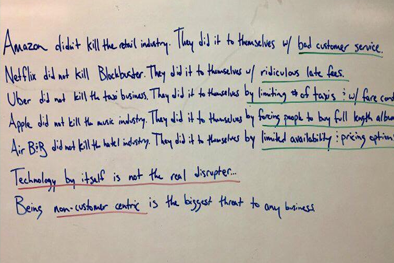 Amazon didn't kill the retail industry. They did it to themselves w/ bad customer service.
Netflix did not kill Blockbuster. They did it to themselves w/ ridiculous late fees.
Uber did not kill the taxi business. They did it to themselves by limiting # of taxis : w/ fare cont
Apple did not kill the music industry. They did it to themselves by forcing people to buy full length album
Air B&B did not kill the hotel industry. They did it to themselves by limited availability : pricing option
Technology by itself is not the real disrupter...
Being non-customer centric is the biggest threat to any business